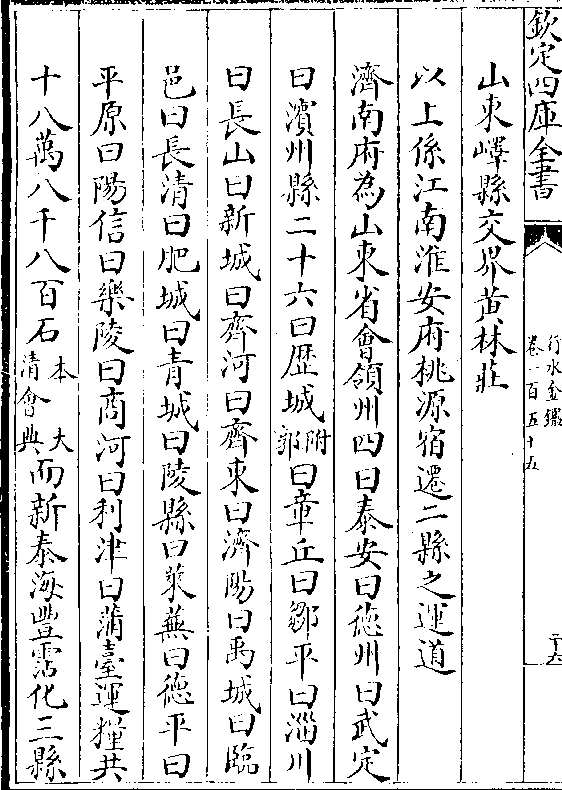 欽定四庫全書
行水金鑑
卷一百五十五
二十六
山東嶧縣交界黄林莊
以上係江南淮安府桃源宿遷二縣之運道
濟南府為山東省會領州四曰泰安曰德州曰武定
曰濱州縣二十六曰歴城附郭曰章丘曰鄒平曰淄川
曰長山曰新城曰齊河曰齊東曰濟陽曰禹城曰臨
邑曰長清曰肥城曰青城曰陵縣曰萊蕪曰德平曰
平原曰陽信曰樂陵曰商河曰利津曰蒲臺運糧共
十八萬八千八百石本大清會典而新泰海豐霑化三縣